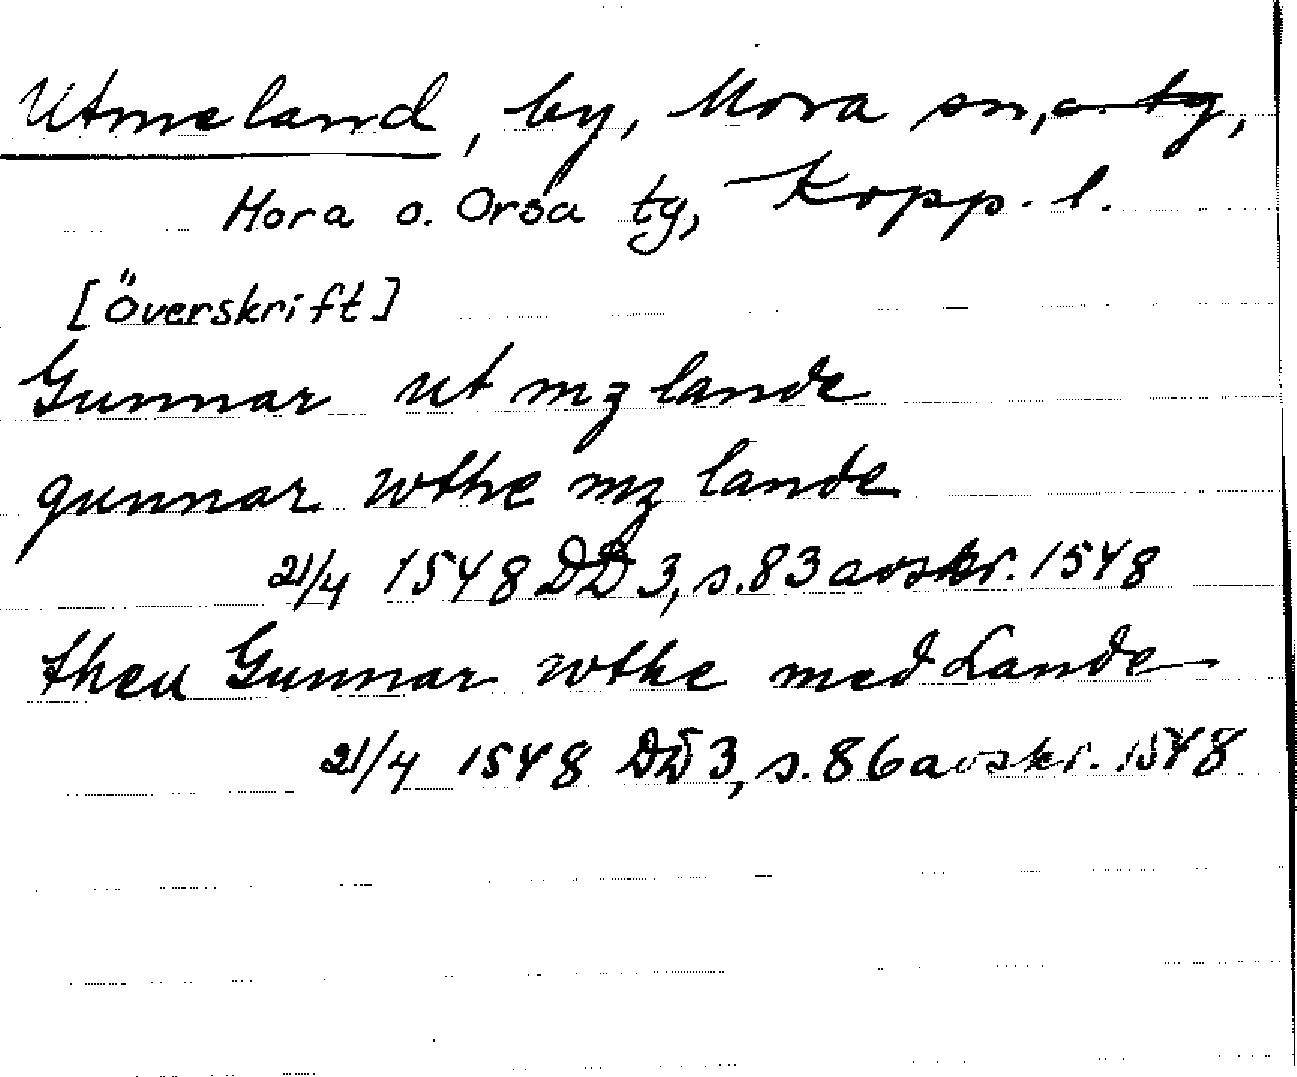 Utmeland, by, Mora sn, o. tg,
Mora o. Orsa tg, Kopp. l.
[Överskrift]
Gunnar ut mz lande
gunnar wthe mz lande
21/4 1548 DD 3, s. 83 avskr. 1548
then Gunnar wthe med Lande
21/4 1548 DD 3, s. 86 avskr. 1548